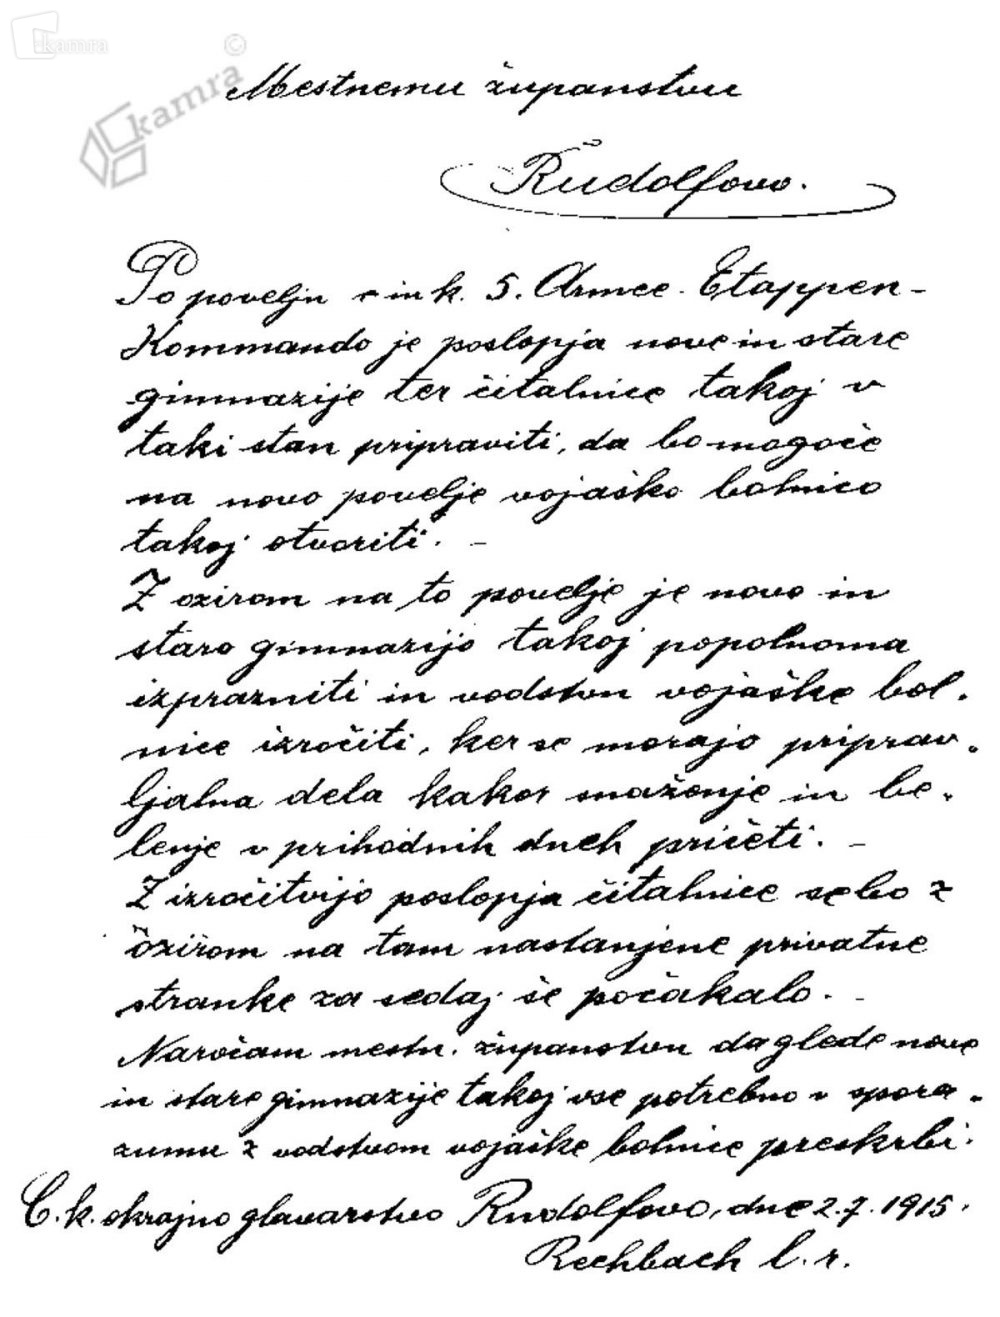 kamra
©
kamra
Mestnemu županstvu
Rudolfovo.
Po povelju c in k. 5. Armee-Etappen-
Kommando je poslopja nove in stare
gimnazije ter čitalnice takoj v
taki stan pripraviti, da bo mogoče
na novo povelje vojaško bolnico
takoj otvoriti. -
Z ozirom na to povelje je novo in
staro gimnazijo takoj popolnoma
izprazniti in vodstvu vojaške bol-
nice izročiti, ker se morajo priprav-
ljalna dela kakor snaženje in be-
lenje v prihodnih dneh pričeti. -
Z izročitvijo poslopja čitalnice se bo z
ozirom na tam nastanjene privatne
stranke za sedaj še počakalo. -
Naročam mestn. županstvu da glede nove
in stare gimnazije takoj vse potrebno v spora-
zumu z vodstvom vojaške bolnice preskrbi.
C. k. okrajno glavarstvo Rudolfovo, dne 2.7.1915.
Rechbach l. r.